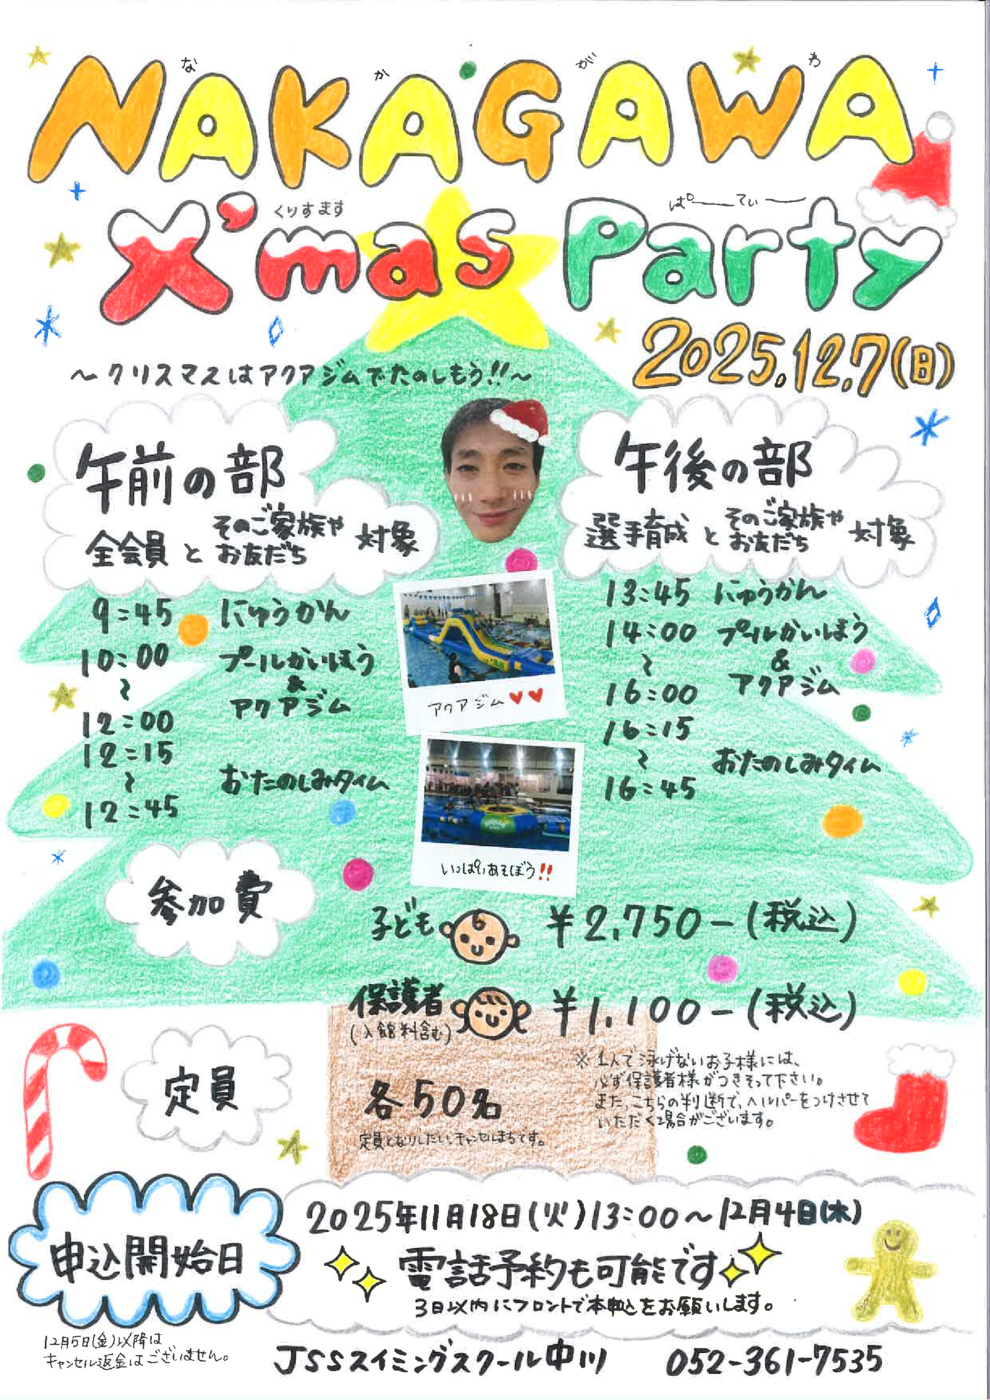 な か が わ
NAKAGAWA
くりすます ぱーてぃー
X'mas Party
2025.12.7(日)
～クリスマスはアクアジムでたのしもう!!～
午前の部
全会員とそのご家族やお友だち対象
9:45 にゅうかん
10:00 プールかいほう
～ &
アクアジム
12:00
12:15
～ おたのしみタイム
12:45
午後の部
選手育成とそのご家族やお友だち対象
13:45 にゅうかん
14:00 プールかいほう
～ &
16:00 アクアジム
16:15
～ おたのしみタイム
16:45
アクアジム♥♥
いっぱいあそぼう!!
参加費
子ども ¥2,750-(税込)
保護者 ¥1,100-(税込)
(入館料含む)
※1人で泳げないお子様には、
必ず保護者様がつきそって下さい。
また、こちらの判断で、ヘルパーをつけさせて
いただく場合がございます。
定員
各50名
定員となりしだい、キャンセルまちです。
申込開始日
2025年11月18日(火)13:00～12月4日(木)
電話予約も可能です
3日以内にフロントで本申込をお願いします。
12月5日(金)以降は
キャンセル返金はございません。
JSSスイミングスクール中川 052-361-7535